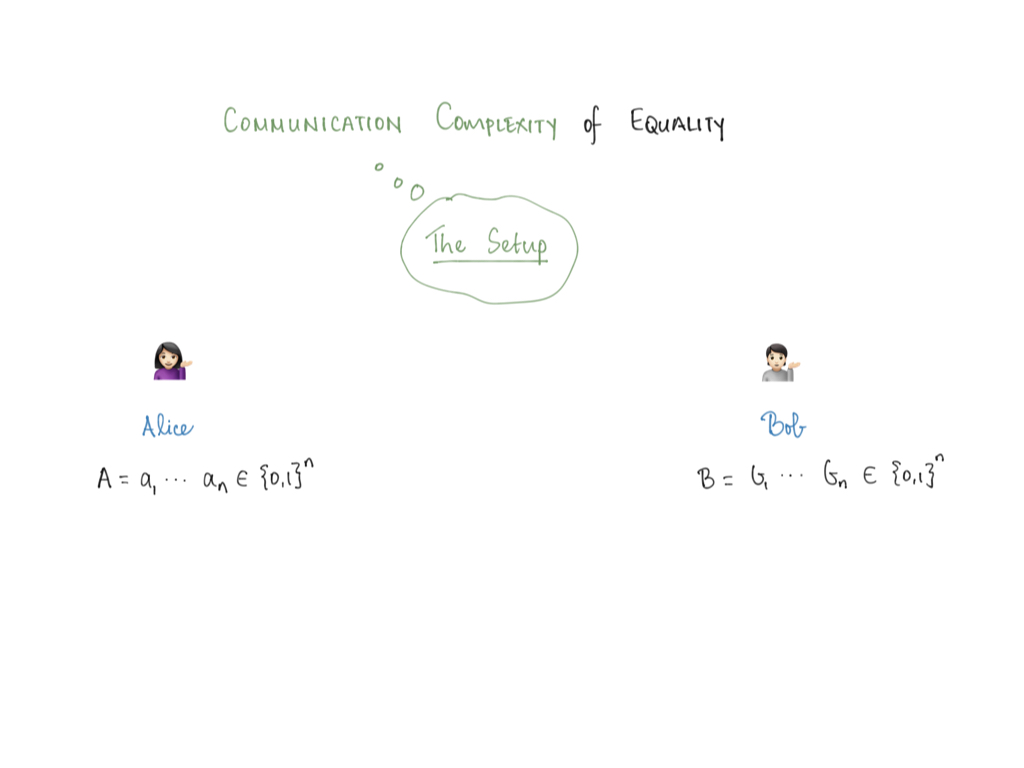 COMMUNICATION COMPLEXITY of EQUALITY
The Setup
Alice
Bob
A = a₁ ⋯ aₙ ∈ {0,1}ⁿ
B = b₁ ⋯ bₙ ∈ {0,1}ⁿ